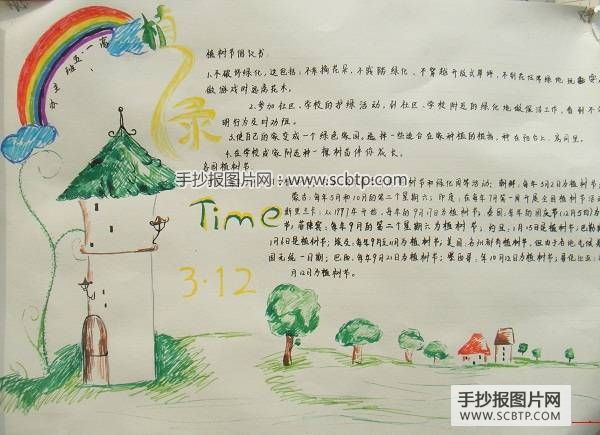 高一·五班主办
植
绿
植树节倡议书
1.不破坏绿化,这包括:不采摘花朵,不踩踏绿化、不穿越开放式草坪,不到花坛等绿地玩耍
做游戏时远离花木。
2.参加社区、学校的护绿活动,到社区、学校附近的绿化地做保洁工作,看到不
明行为及时劝阻。
3.使自己的家变成一个绿色家园,选择一些适合在家种植的植物,种在阳台上、房间里。
4.在学校或家附近种一棵树苗伴你成长。
各国植树节
手抄报图片网:www.scbtp.com
树节和绿化周等活动;朝鲜:每年3月2日为植树节
蒙古:每年5月和10月的第二个星期六;印度:在每年7月第一周开展全国植树节活动
斯里兰卡:从1977年开始,每年的9月17日为植树节;泰国:每年的国庆节(12月5日)为
节;菲律宾:每年9月的第二个星期六为植树节;约旦:1月15日是植树节;巴勒斯
1月6日是植树节;埃及:每年9月至10月为植树节;美国:各州都有植树节,但由于各地气候
因无统一日期;巴西:每年9月21日为植树节;墨西哥:年10月12日为植树节;哥伦比亚:
月12日为植树节。
Time
3·12
手抄报图片网
WWW.SCBTP.COM